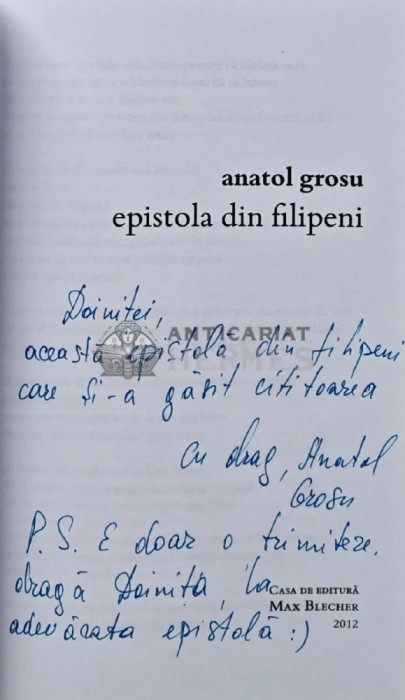 anatol grosu
epistola din filipeni
Doiniței,
această epistolă din filipeni
care și-a găsit cititoarea
Cu drag, Anatol
Grosu
P.S. E doar o trimitere,
dragă Doiniță, la
adevărata epistolă :)
CASA DE EDITURĂ
MAX BLECHER
2012
ANTICARIAT
HERMES